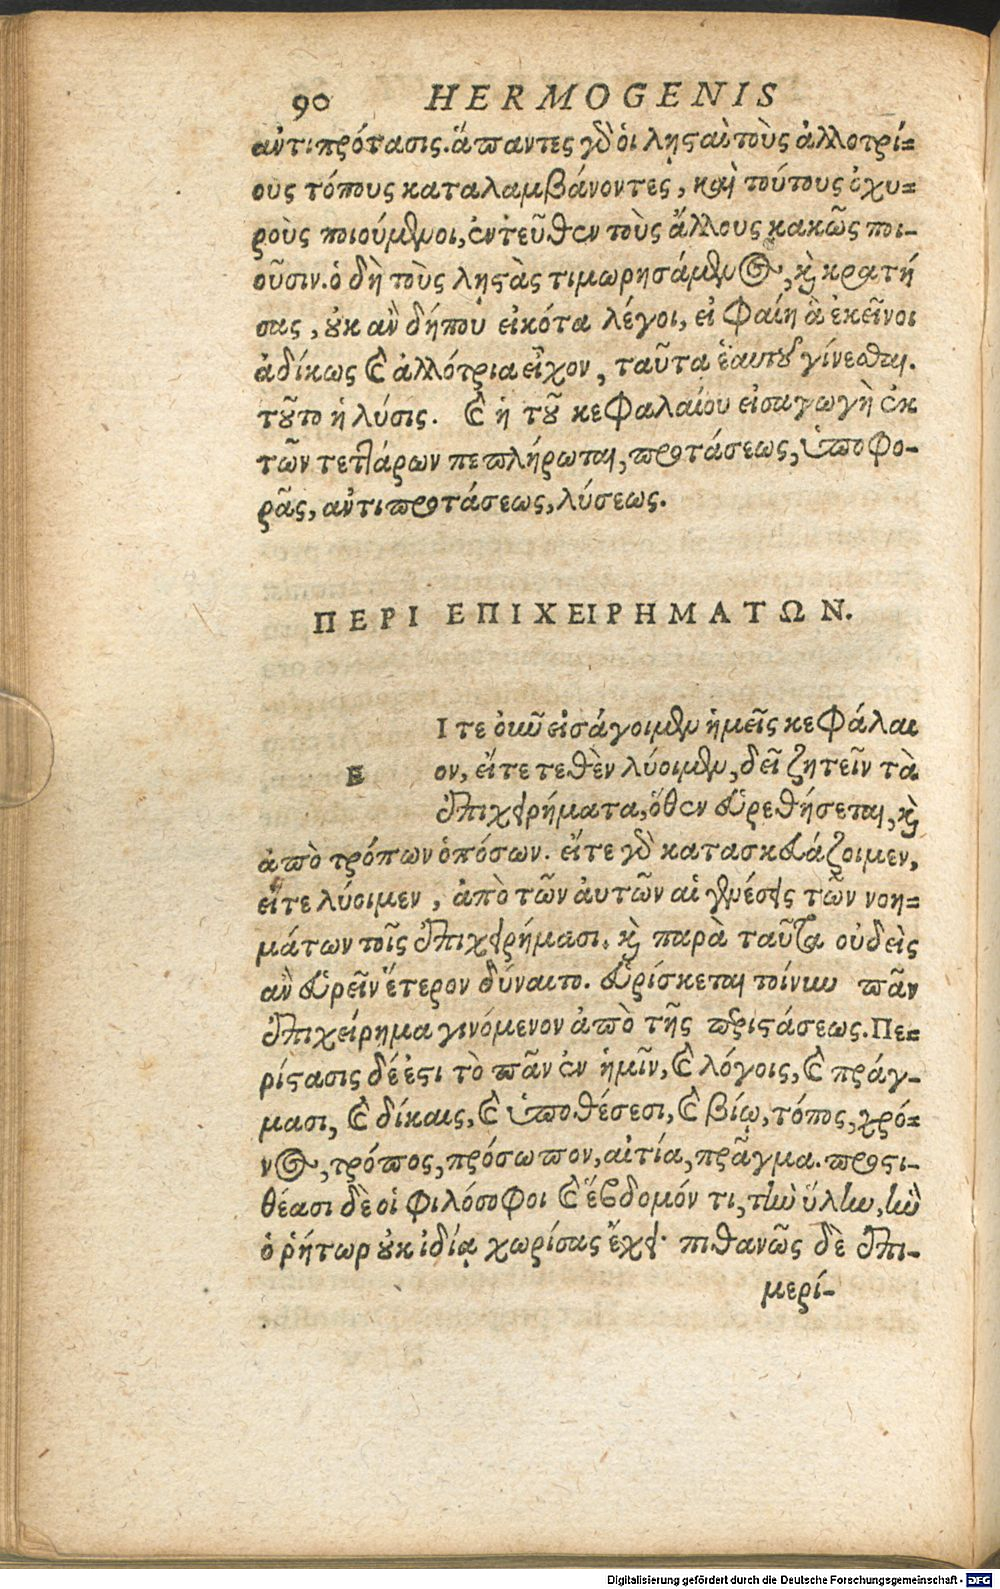 90 HERMOGENIS
ἀντιπρότασις. ἅπαντες γὸ οἱ λῃϛαὶ τοὺς ἀλλοτρί-
ους τόπους καταλαμβάνοντες, καὶ τούτους ὀχυ-
ροὺς ποιούμενοι, ἐντεῦθεν τοὺς ἄλλους κακῶς ποι-
οῦσιν. ὁ δὴ τοὺς λῃϛὰς τιμωρησάμενος, καὶ κρατή
σας, οὐκ ἂν δήπου εἰκότα λέγοι, εἰ φαίη ἃ ἐκεῖνοι
ἀδίκως καὶ ἀλλότρια εἶχον, ταῦτα ἑαυτοῦ γίνεσθαι.
τοῦτο ἡ λύσις. καὶ ἡ τοῦ κεφαλαίου εἰσαγωγὴ ἐκ
τῶν τεττάρων πεπλήρωται, προτάσεως, ὑποφο-
ρᾶς, ἀντιπροτάσεως, λύσεως.
ΠΕΡΙ ΕΠΙΧΕΙΡΗΜΑΤΩΝ.
Ε Ι τε οὖν εἰσάγοιμεν ἡμεῖς κεφάλαι
ον, εἴτε τεθὲν λύοιμεν, δεῖ ζητεῖν τὰ
ἐπιχειρήματα, ὅθεν εὑρεθήσεται, καὶ
ἀπὸ τρόπων ὁπόσων. εἴτε γὸ κατασκευάζοιμεν,
εἴτε λύοιμεν, ἀπὸ τῶν αὐτῶν αἱ γενέσεις τῶν νοη-
μάτων τοῖς ἐπιχειρήμασι. καὶ παρὰ ταῦτα οὐδεὶς
ἂν εὑρεῖν ἕτερον δύναιτο. εὑρίσκεται τοίνυν πᾶν
ἐπιχείρημα γινόμενον ἀπὸ τῆς περιϛάσεως. Πε-
ρίϛασις δέ ἐϛι τὸ πᾶν ἐν ἡμῖν, καὶ λόγοις, καὶ πράγ-
μασι, καὶ δίκαις, καὶ ὑποθέσεσι, καὶ βίῳ, τόπος, χρό-
νος, τρόπος, πρόσωπον, αἰτία, πρᾶγμα. προϛι-
θέασι δὲ οἱ φιλόσοφοι καὶ ἕβδομόν τι, τὴν ὕλην, ἣν
ὁ ῥήτωρ οὐκ ἰδίᾳ χωρίσας ἔχει· πιθανῶς δὲ ἐπι-
μερί-
Digitalisierung gefördert durch die Deutsche Forschungsgemeinschaft - DFG